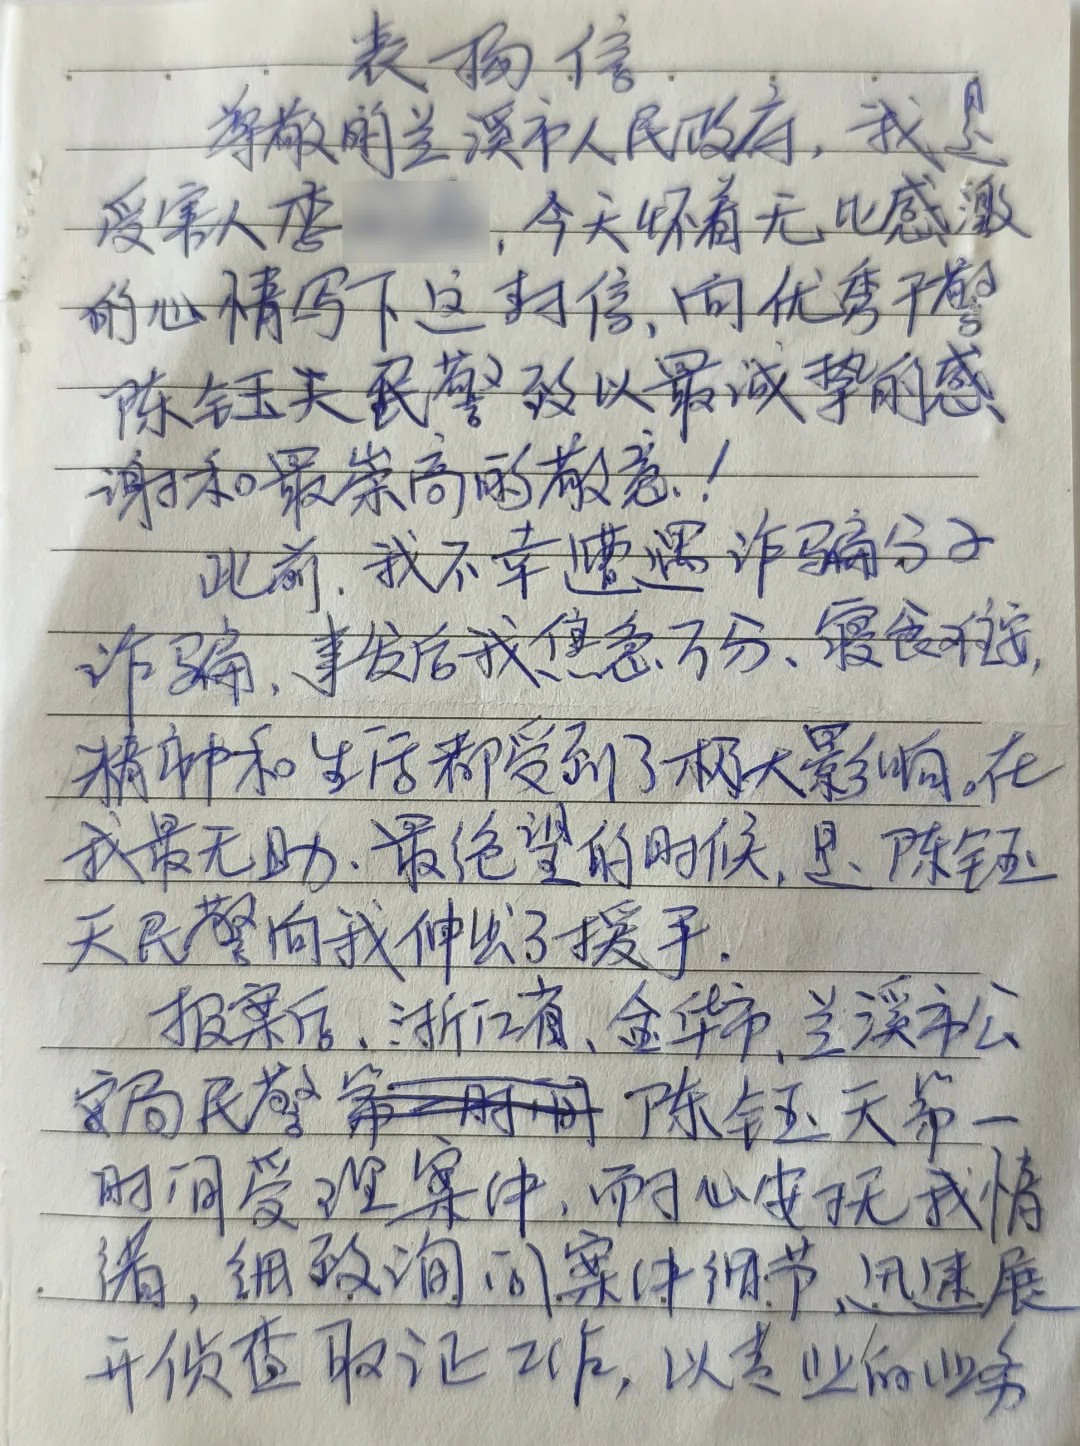 表扬信
尊敬的兰溪市人民政府，我是
受害人李，今天怀着无比感激
的心情写下这封信，向优秀干警
陈钰天民警致以最诚挚的感
谢和最崇高的敬意！
此前，我不幸遭遇诈骗分子
诈骗，事发后我焦急万分、寝食难安，
精神和生活都受到了极大影响。在
我最无助、最绝望的时候，是陈钰
天民警向我伸出了援手．
报案后，浙江省、金华市、兰溪市公
安局民警第一时间陈钰天第一
时间受理案件，耐心安抚我情
绪，细致询问案件细节，迅速展
开侦查取证工作，以专业的业务